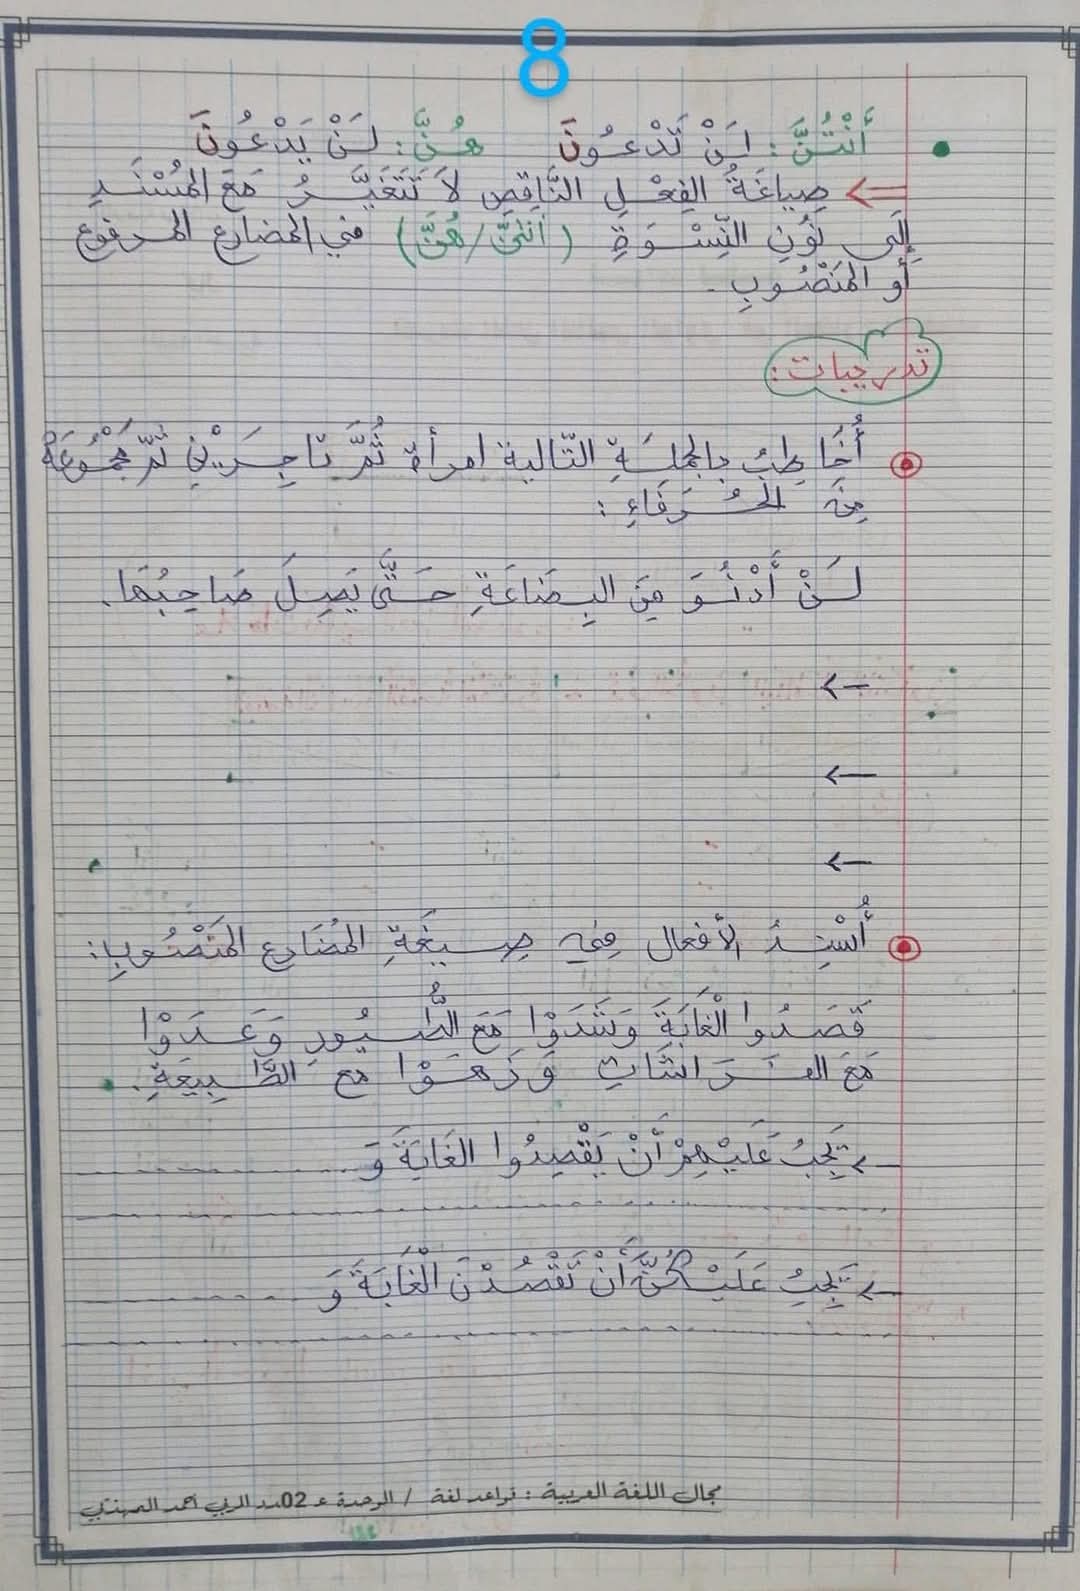 8
أَنْتُنَّ: لَنْ تَدْعُونَ هُنَّ: لَنْ يَدْعُونَ
⇐ صِيَاغَةُ الفِعْلِ النَّاقِصِ لاَ تَتَغَيَّرُ مَعَ المُسْنَدِ
إِلَى نُونِ النِّسْوَةِ (أنتنّ/هُنَّ) في المضارع المرفوع
أو المَنْصُوبِ.
تدريبات:
أُخَاطِبُ بالجملَةِ التّالية امرأة ثُمَّ تاجِرَيْنِ ثمّ مَجْمُوعَةً
مِنَ الحُرَفَاءِ:
لَنْ أَدْنُوَ مِنَ البِضَاعَةِ حَتَّى يَصِلَ صَاحِبُهَا.
←
←
←
أُسْنِدُ الأفعال فِي صِيغَةِ المُضَارع المَنْصُوبِ:
قَصَدُوا الْغَابَةَ وَشَدَوْا مَعَ الطُّيُورِ وَعَدَوْا
مَعَ الفَرَاشَاتِ وَزَهَوْا مع الطَّبِيعَةِ.
← يَجِبُ عَلَيْهِمْ أَنْ يَقْصِدُوا الغَابَةَ وَ
← يَجِبُ عَلَيْكُنَّ أَنْ تَقْصُدْنَ الْغَابَةَ وَ
مجال اللغة العربية: قواعد لغة / الوحدة عـ02ـدد المربي أحمد